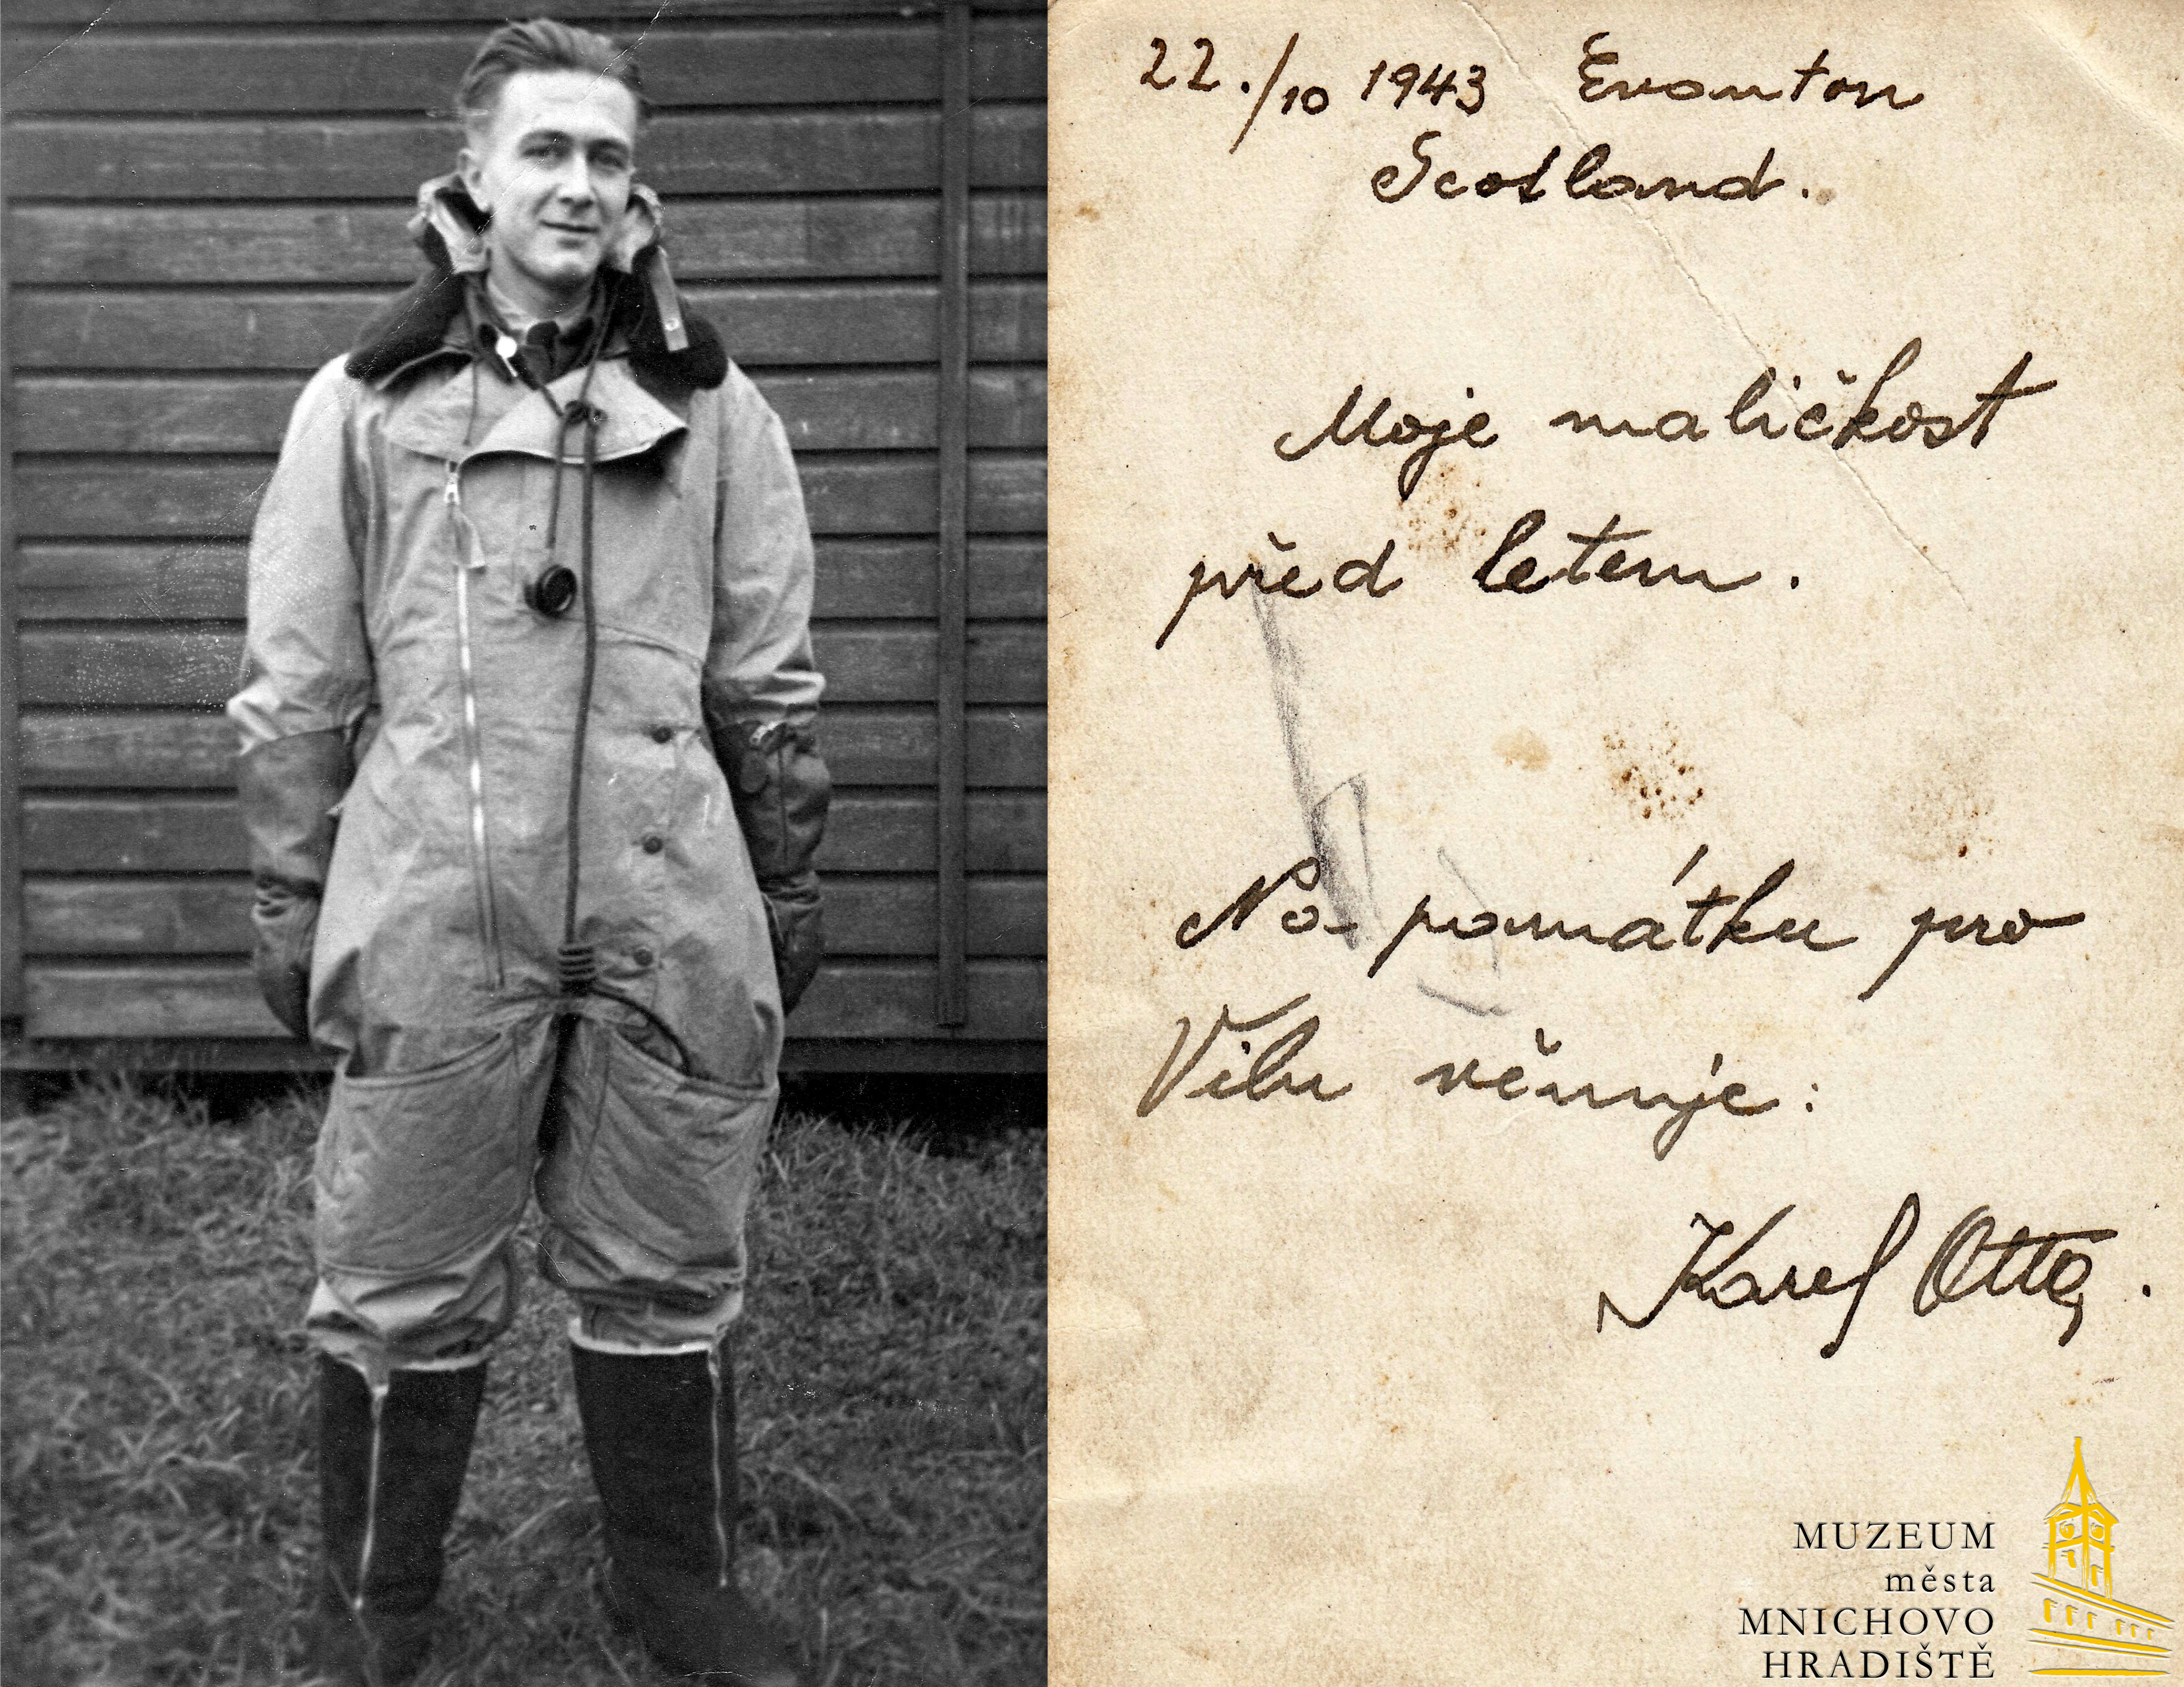 22./10 1943 Evanton
Scotland.
Moje maličkost
před letem.
Na památku pro
Vilu věnuje:
Karel Otta.
MUZEUM
města
MNICHOVO
HRADIŠTĚ